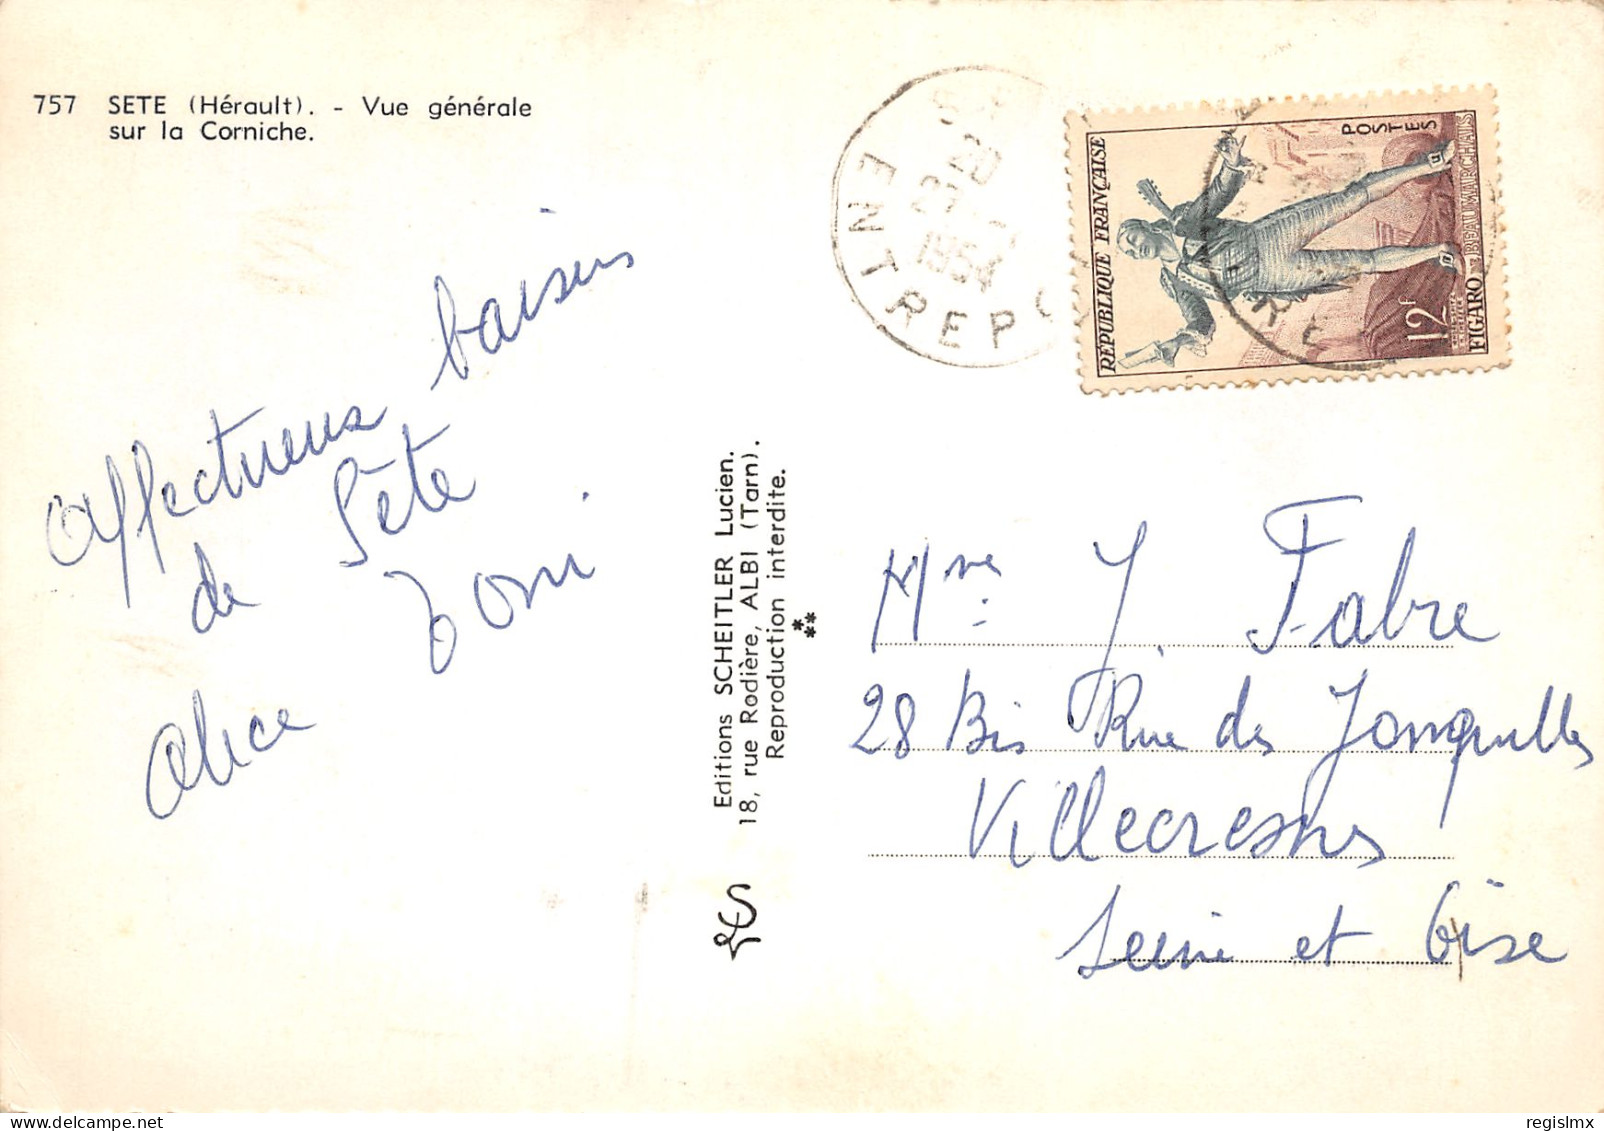 757 SETE (Hérault). - Vue générale
sur la Corniche.
Affectueux baisers
de Sète
Tom
Alice
Editions SCHEITLER Lucien.
18, rue Rodière, ALBI (Tarn).
Reproduction interdite.
20
1954
ENTREPO
RÉPUBLIQUE FRANÇAISE
POSTES
12F
FIGARO - BEAUMARCHAIS
Mme J Fabre
28 Bis Rue des Jonquilles
Villecresnes
Seine et Oise
regislmx